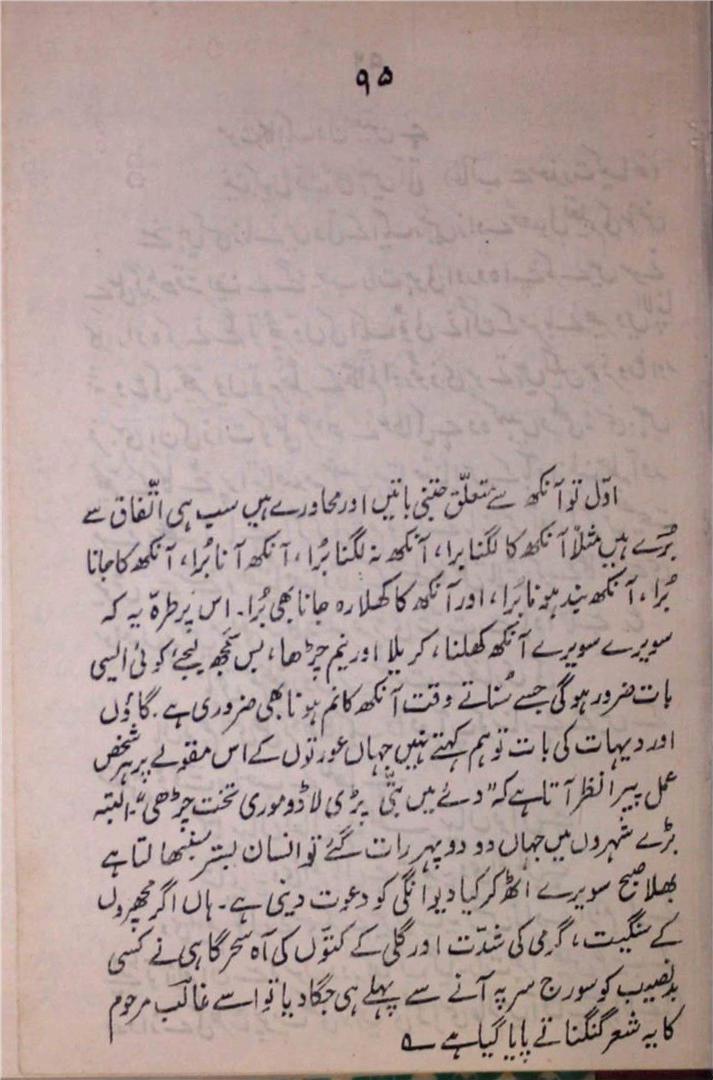 ۹۵
اوّل تو آنکھ سے متعلّق جتنی باتیں اور محاورے ہیں سب ہی اتّفاق سے
بُرے ہیں مثلاً آنکھ کا لگنا برا، آنکھ نہ لگنا بُرا، آنکھ آنا بُرا، آنکھ کا جانا
بُرا، آنکھ بند ہونا بُرا، اور آنکھ کا کھلا رہ جانا بھی بُرا۔ اس پر طرہّ یہ کہ
سویرے سویرے آنکھ کھلنا، کریلا اور نیم چڑھا، بس سمجھ لیجئے کوئی ایسی
بات ضرور ہوگی جسے سُناتے وقت آنکھ کا نم ہونا بھی ضروری ہے۔ گاؤں
اور دیہات کی بات تو ہم کہتے نہیں جہاں عورتوں کے اس مقولے پر ہر شخص
عمل پیرا نظر آتا ہے کہ "دئے میں بتّی پڑی لاڈو موری تخت چڑھی"۔ البتہ
بڑے شہروں میں جہاں دو دو پہر رات گئے تو انسان بستر سنبھالتا ہے
بھلا صبح سویرے اُٹھ کر کیا دیوانگی کو دعوت دینی ہے۔ ہاں اگر مچھروں
کے سنگیت، گرمی کی شدّت اور گلی کے کتّوں کی آہ سحر گاہی نے کسی
بدنصیب کو سورج سر پہ آنے سے پہلے ہی جگا دیا تو اسے غالبؔ مرحوم
کا یہ شعر گنگناتے پایا گیا ہے ؎